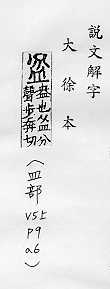 說文解字
大徐本
盆盎也从皿分
聲步奔切
(皿部
v5上
p9
a6)